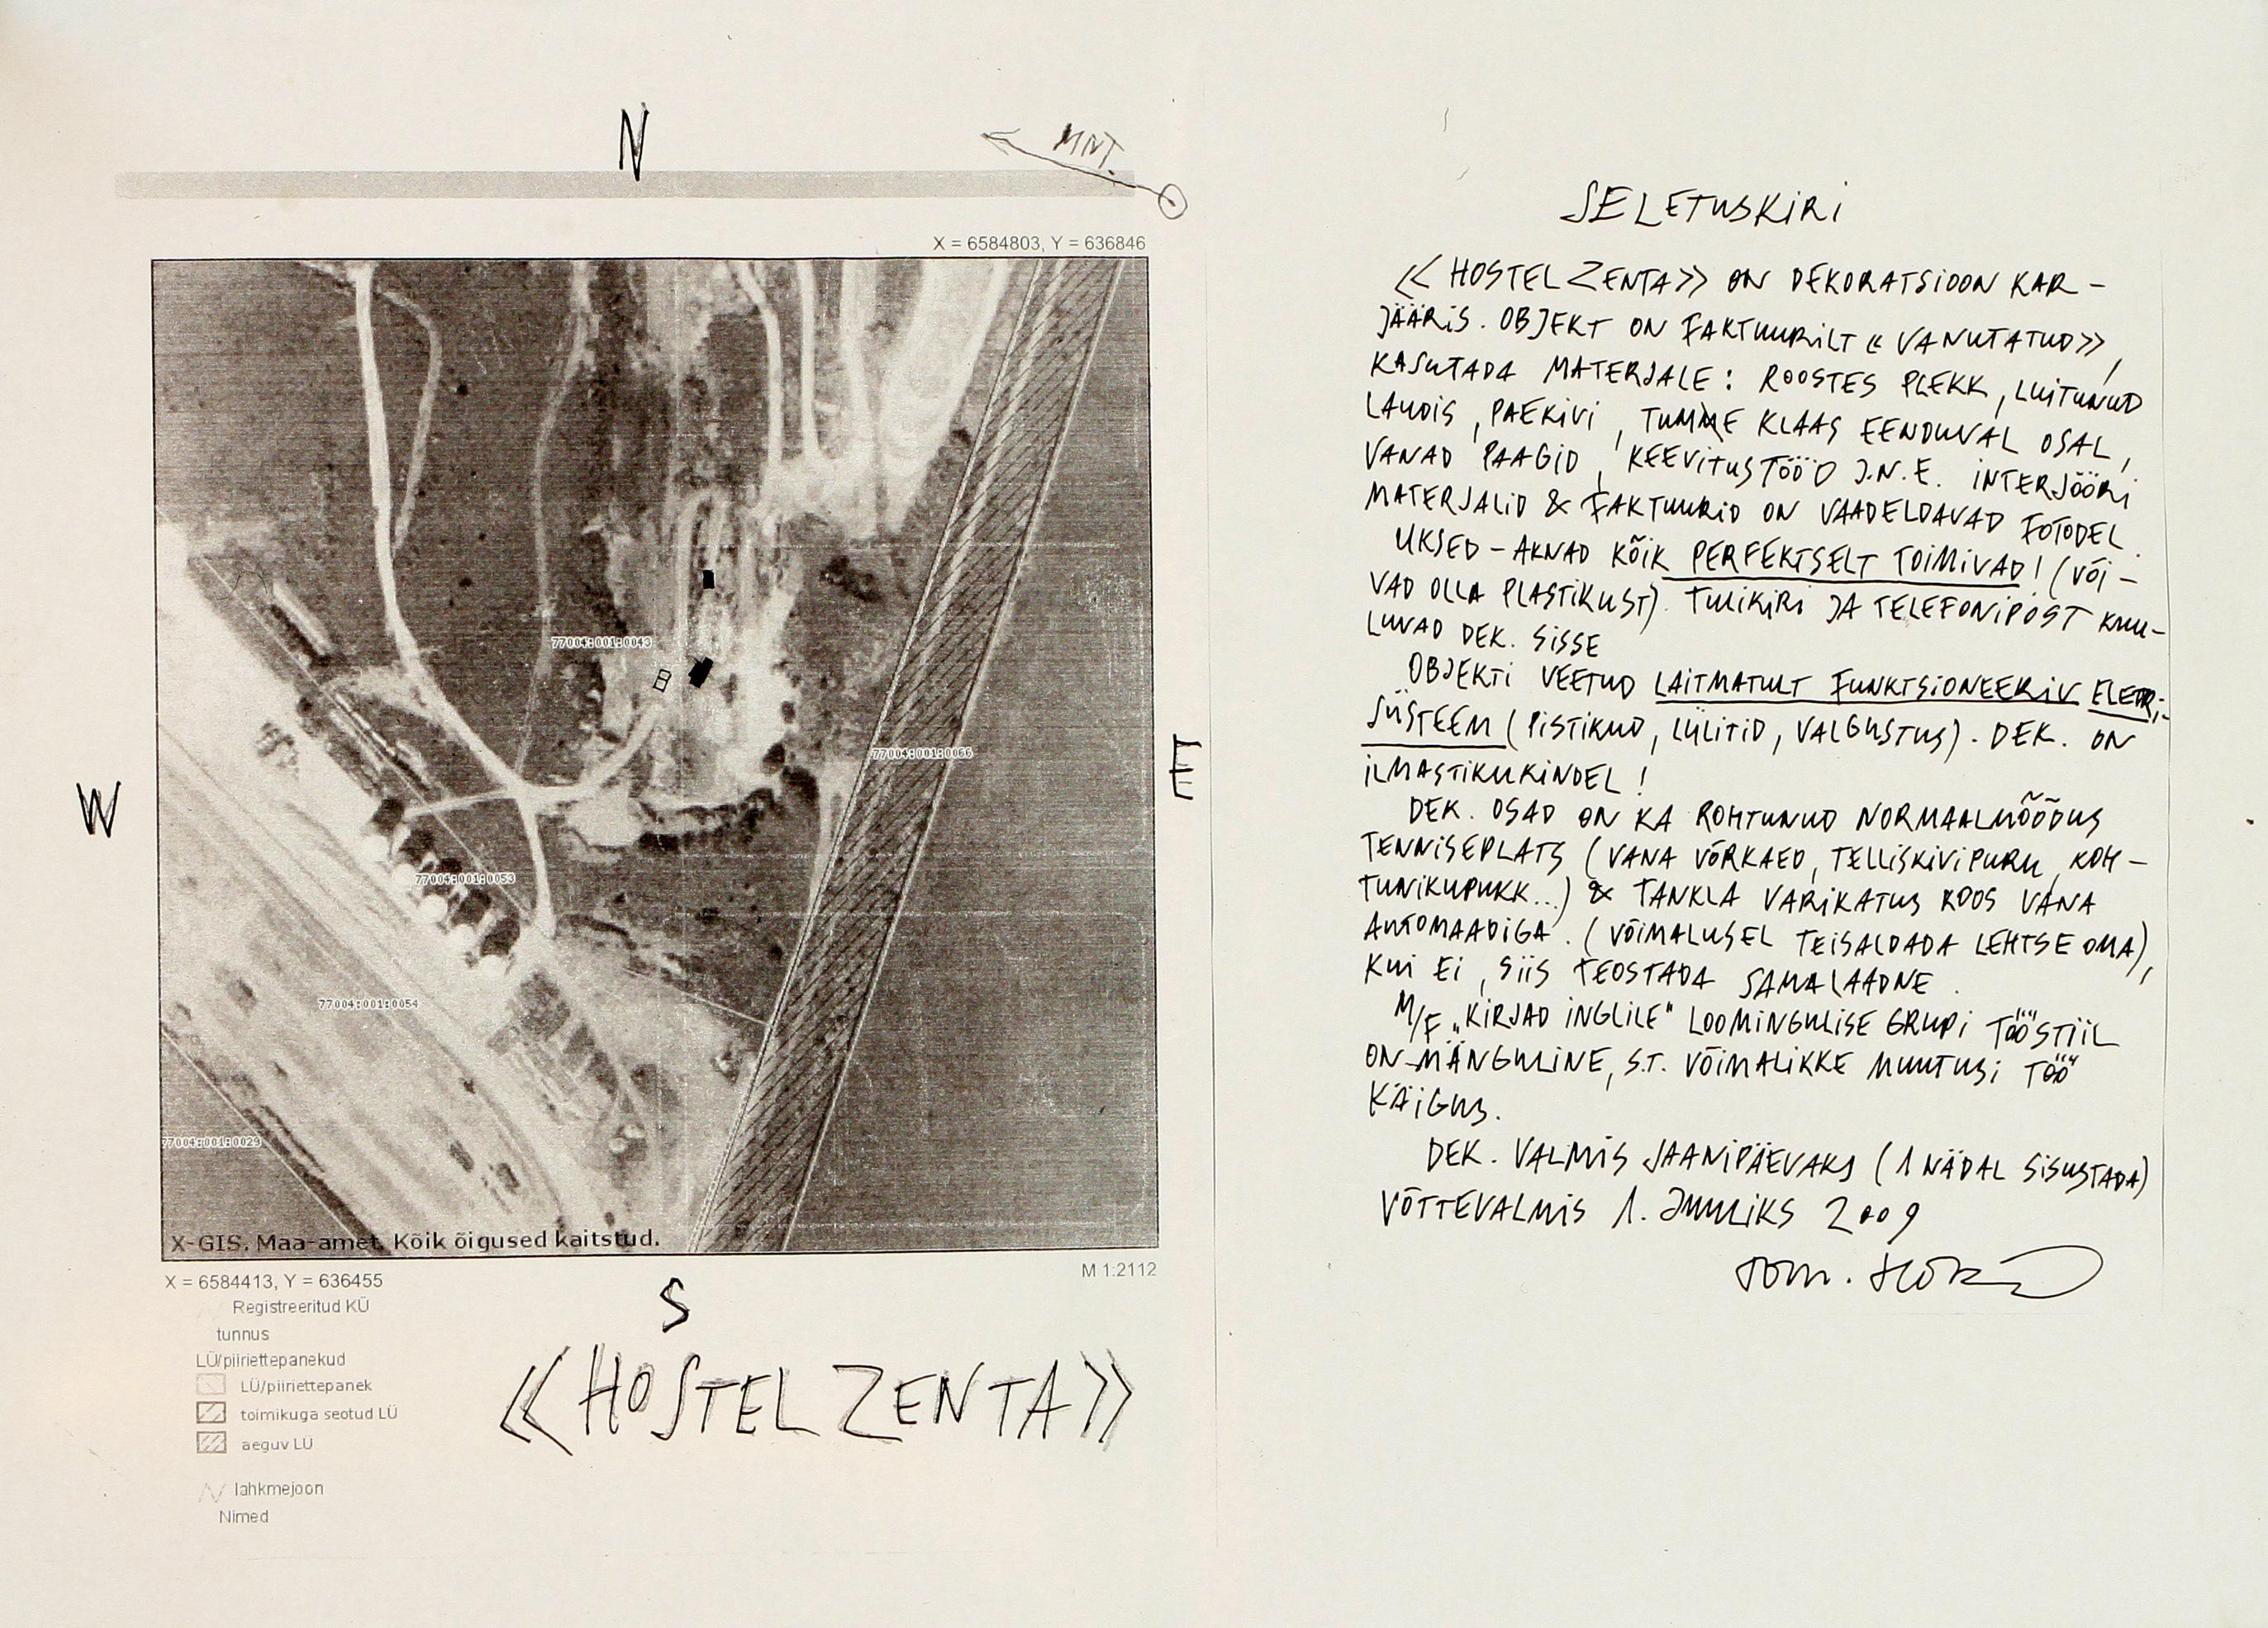 N
MNT.
X = 6584803, Y = 636846
77004:001:0043
77004:001:0066
W
E
77004:001:0053
77004:001:0054
77004:001:0029
X-GIS. Maa-amet. Kõik õigused kaitstud.
X = 6584413, Y = 636455
M 1:2112
S
Registreeritud KÜ
tunnus
LÜ/piiriettepanekud
LÜ/piiriettepanek
toimikuga seotud LÜ
aeguv LÜ
lahkmejoon
Nimed
«HOSTEL ZENTA»
SELETUSKIRI
«HOSTEL ZENTA» ON DEKORATSIOON KAR-
JÄÄRIS. OBJEKT ON FAKTUURILT «VANUTATUD»,
KASUTADA MATERJALE: ROOSTES PLEKK, LUITUNUD
LAUDIS, PAEKIVI, TUMME KLAAS EENDUVAL OSAL,
VANAD PAAGID, KEEVITUSTÖÖD J.N.E. INTERJÖÖRI
MATERJALID & FAKTUURID ON VAADELDAVAD FOTODEL.
UKSED-AKNAD KÕIK PERFEKTSELT TOIMIVAD! (VÕI-
VAD OLLA PLASTIKUST). TULIKIRI JA TELEFONIPOST KUU-
LUVAD DEK. SISSE
OBJEKTI VEETUD LAITMATULT FUNKTSIONEERIV
SÜSTEEM (PISTIKUD, LÜLITID, VALGUSTUS). DEK. ON
ILMASTIKUKINDEL!
DEK. OSAD ON KA ROHTUNUD NORMAALMÕÕDUS
TENNISEPLATS (VANA VÕRKAED, TELLISKIVIPURU, KOH-
TUNIKUPUKK...) & TANKLA VARIKATUS KOOS VANA
AUTOMAADIGA. (VÕIMALUSEL TEISALDADA LEHTSE OMA),
KUI EI, SIIS TEOSTADA SAMALAADNE.
M/F „KIRJAD INGLILE" LOOMINGULISE GRUPI TÖÖSTIIL
ON MÄNGULINE, S.T. VÕIMALIKKE MUUTUSI TÖÖ
KÄIGUS.
DEK. VALMIS JAANIPÄEVAKS (1 NÄDAL SISUSTADA)
VÕTTEVALMIS 1. JUULIKS 2009